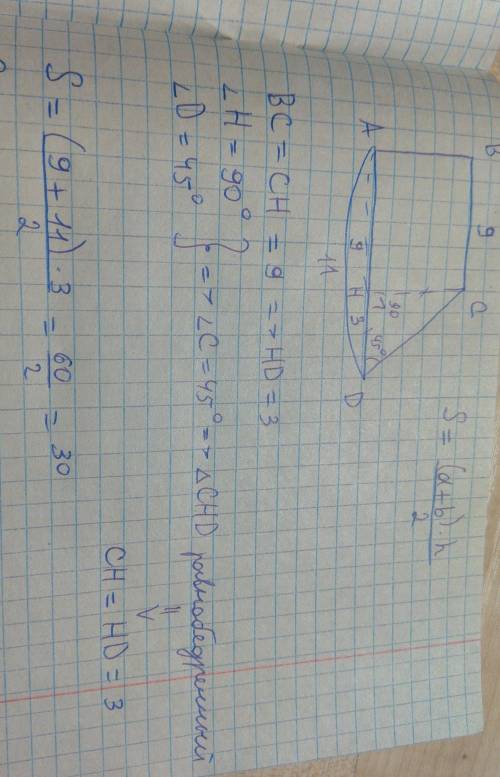 B 9 C
90
45°
A 9 H 3 D
11
S = (a+b)·h / 2
BC = CH = 9 => HD = 3
∠H = 90°
∠D = 45° } => ∠C = 45° => △CHD равнобедренный
CH = HD = 3
S = (9 + 11)·3 / 2 = 60 / 2 = 30